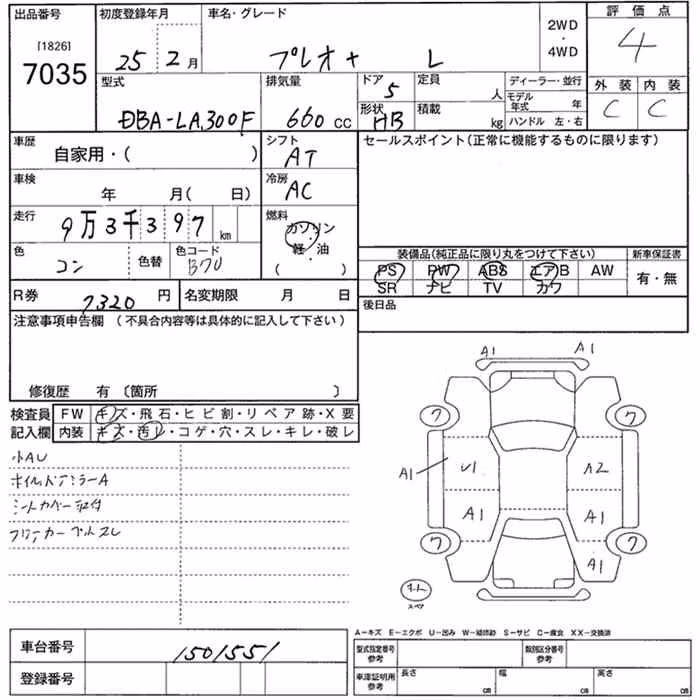 出品番号
[1826]
7035
初度登録年月
25 2 月
車名・グレード
プレオ+ L
2WD
・
4WD
評価点
4
外装 内装
C C
型式
DBA-LA300F
排気量
660 cc
ドア
5
形状
HB
定員
人
積載
kg
ディーラー・並行
モデル年式 年
ハンドル 左・右
車歴
自家用・( )
シフト
AT
セールスポイント(正常に機能するものに限ります)
車検
年 月( 日)
冷房
AC
走行
9万3千397 km
燃料
ガソリン
・
軽・油
( )
色
コン
色替
色コード
B70
装備品(純正品に限り丸をつけて下さい)
PS PW ABS エアB AW
SR ナビ TV カワ
新車保証書
有・無
R券
7,320 円
名変期限 月 日
後日品
注意事項申告欄(不具合内容等は具体的に記入して下さい)
修復歴 有〔箇所 〕
検査員
記入欄
FW キズ・飛石・ヒビ割・リペア跡・X要
内装 キズ・汚レ・コゲ・穴・スレ・キレ・破レ
小AU
ホイル ドアミラーA
シートカバー取付
A1 A1
ワ ワ
A1 U1 A2
A1 A1
ワ ワ
A1
スペア
A-キズ E-エクボ U-凹み W-補修跡 S-サビ C-腐食 XX-交換済
車台番号
1501551
登録番号
型式指定番号
参考
類別区分番号
参考
車庫証明用
参考
長さ cm 幅 cm 高さ cm